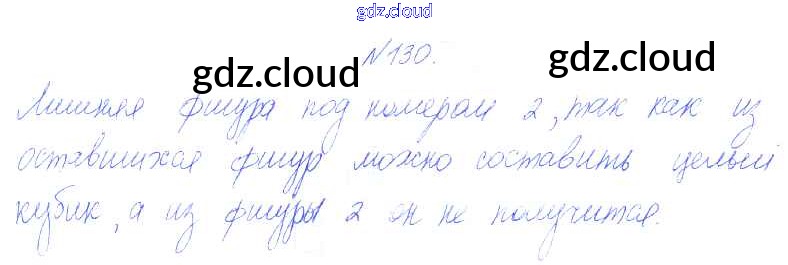 gdz.cloud
№130.
gdz.cloud gdz.cloud
Лишняя фигура под номером 2, так как из
оставшихся фигур можно составить целый
кубик, а из фигуры 2 он не получится.